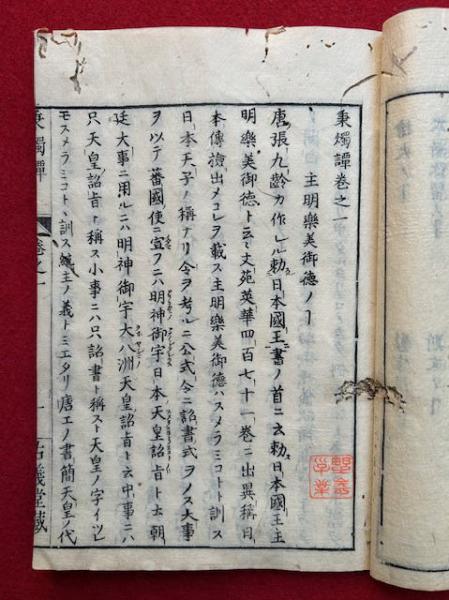 秉燭譚卷之一
主明樂美御德ノヿ
唐張九齡カ作レル勅日本國王書ノ首ニ云勅日本國王主
明樂美御德ト云云文苑英華四百七十一卷ニ出異稱日
本傳澰出メコレヲ載ス主明樂美御德ハスメラミコトト訓ス
日本天子ノ稱ナリ今ヲ考ルニ公式令ニ詔書式ヲノス大事
ヲ以テ蕃國使ニ宣フニハ明神御宇日本天皇詔旨ト云朝
廷大事ニ用ルニハ明神御宇大八洲天皇詔旨ト云中事ニハ
只天皇詔旨ト稱ス小事ニハ只詔書ト稱スト天皇ノ字イツレ
モスメラミコトヽ訓ス統主ノ義トミエタリ唐エノ書簡天皇ノ代
秉燭譚
卷之一
古義堂藏